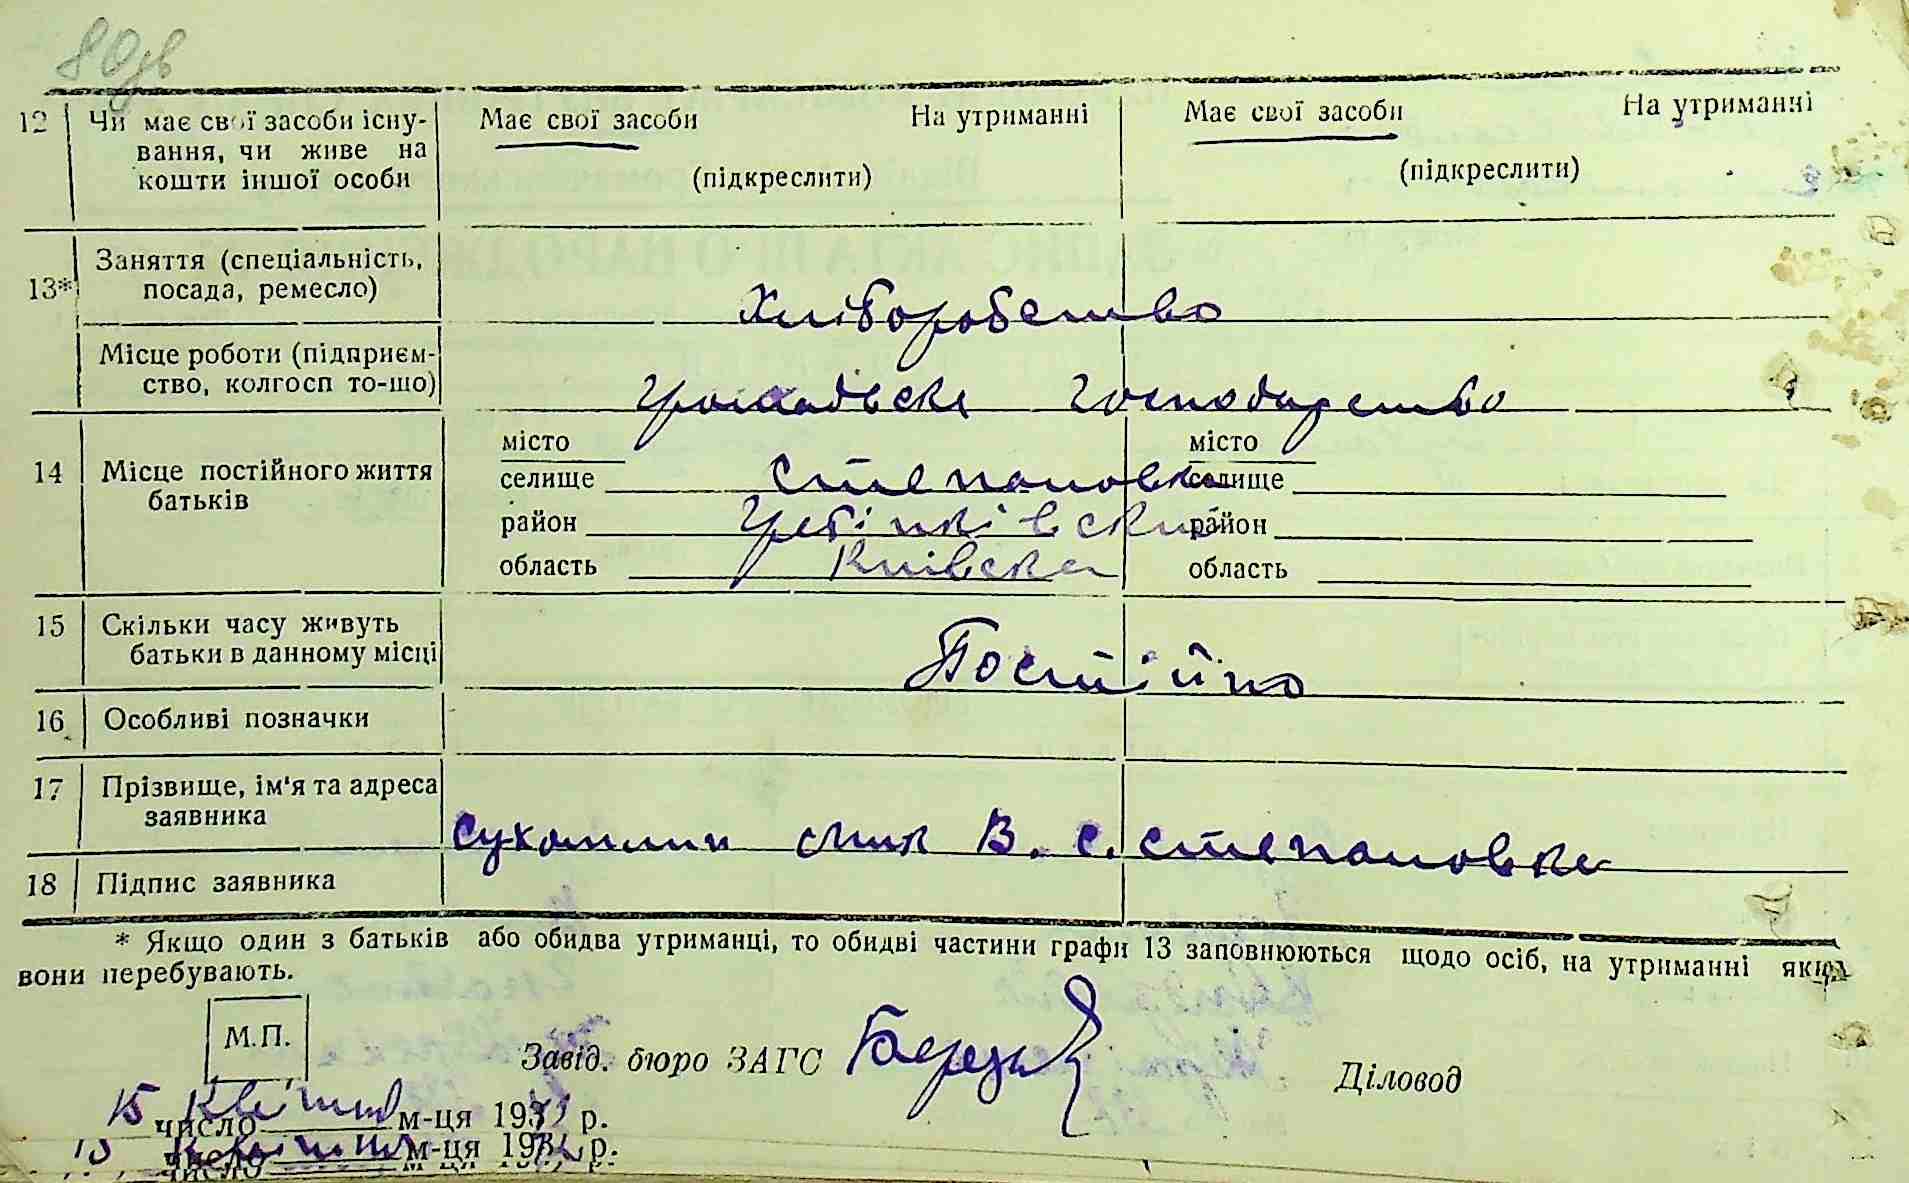 80зв
12 Чи має свої засоби існу- Має свої засоби На утриманні Має свої засоби На утриманні
вання, чи живе на
кошти іншої особи (підкреслити) (підкреслити)
13* Заняття (спеціальність,
посада, ремесло) Хліборобство
Місце роботи (підприєм-
ство, колгосп то-що) Громадське господарство
14 Місце постійного життя
батьків
місто місто
селище Степановка селище
район Гребінківский район
область Київска область
15 Скільки часу живуть
батьки в данному місці Постійно
16 Особливі позначки
17 Прізвище, ім'я та адреса
заявника Сухомлин В. С. Степановка
18 Підпис заявника
* Якщо один з батьків або обидва утриманці, то обидві частини графи 13 заповнюються щодо осіб, на утриманні яких
вони перебувають.
М.П.
Завід. бюро ЗАГС Діловод
15 число Квітня м-ця 193 р.
число м-ця 19 р.